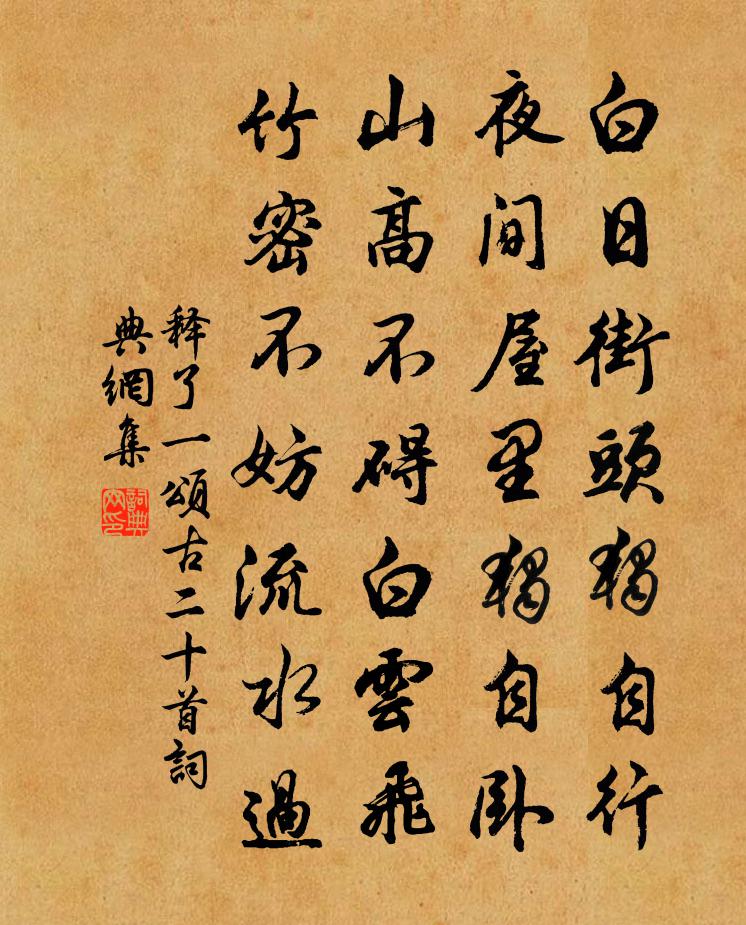 白日街頭獨自行
夜間屋里獨自卧
山高不碍白雲飛
竹密不妨流水過
释了一頌古二十首詞
典網集
詞典
网印